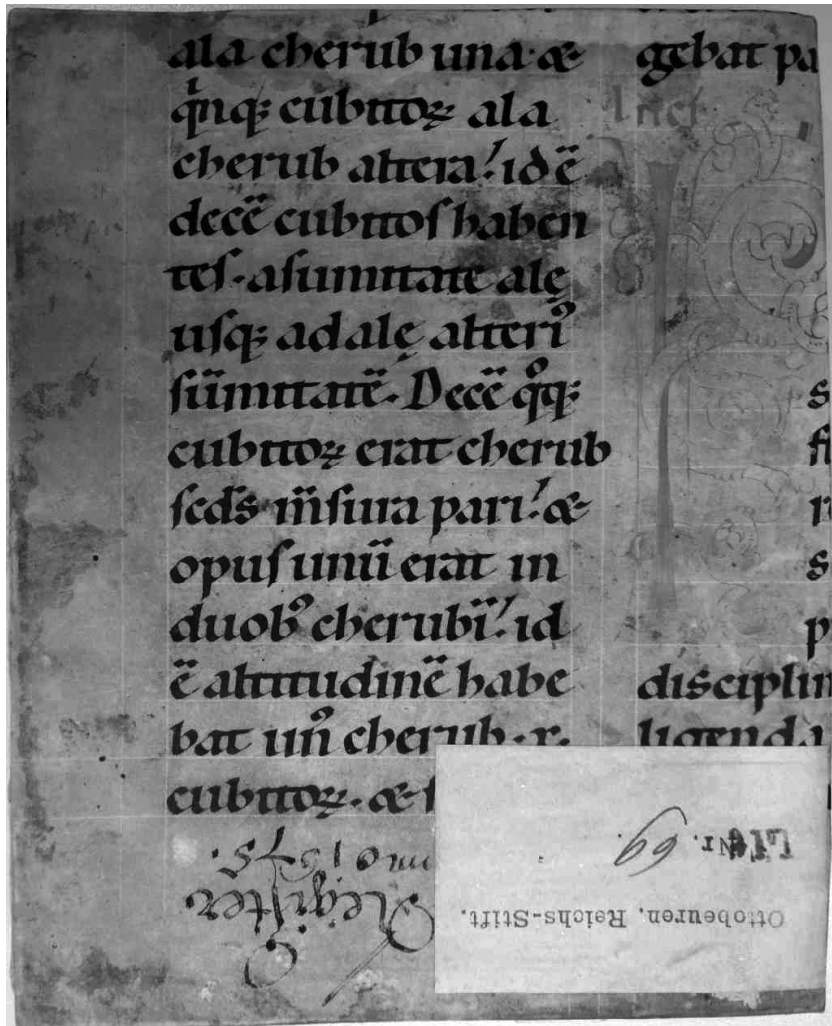 ala cherub una· &
q̇nq; cubitoꝝ ala
cherub altera.' id ē
decē cubitos haben
tes· a sumitate alę
usq; ad alę alteri᾿
sūmitatē. Decē q°q;
cubitoꝝ erat cherub
scd̄s m̄sura pari.' &
opus unū erat in
duob᾿ cherubī.' id
ē altitudinē habe
bat un᾿ cherub· x·
cubitoꝝ. &
gebat pa
Inci
s
fi
r
s
p
disciplin
ligenda
Register
1575.
Ottobeuren, Reichs-Stift.
Lit Nr. 69.